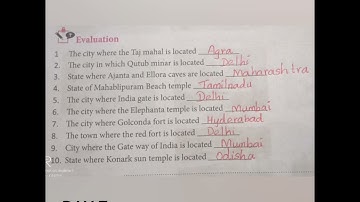 Evaluation
1 The city where the Taj mahal is located Agra
2. The city in which Qutub minar is located Delhi
3. State where Ajanta and Ellora caves are located Maharashtra
4. State of Mahablipuram Beach temple Tamilnadu
5. The city where India gate is located Delhi
6. The city where the Elephanta temple is located Mumbai
7. The city where Golconda fort is located Hyderabad
8. The town where the red fort is located Delhi
9. City where the Gate way of India is located Mumbai
10. State where Konark sun temple is located Odisha